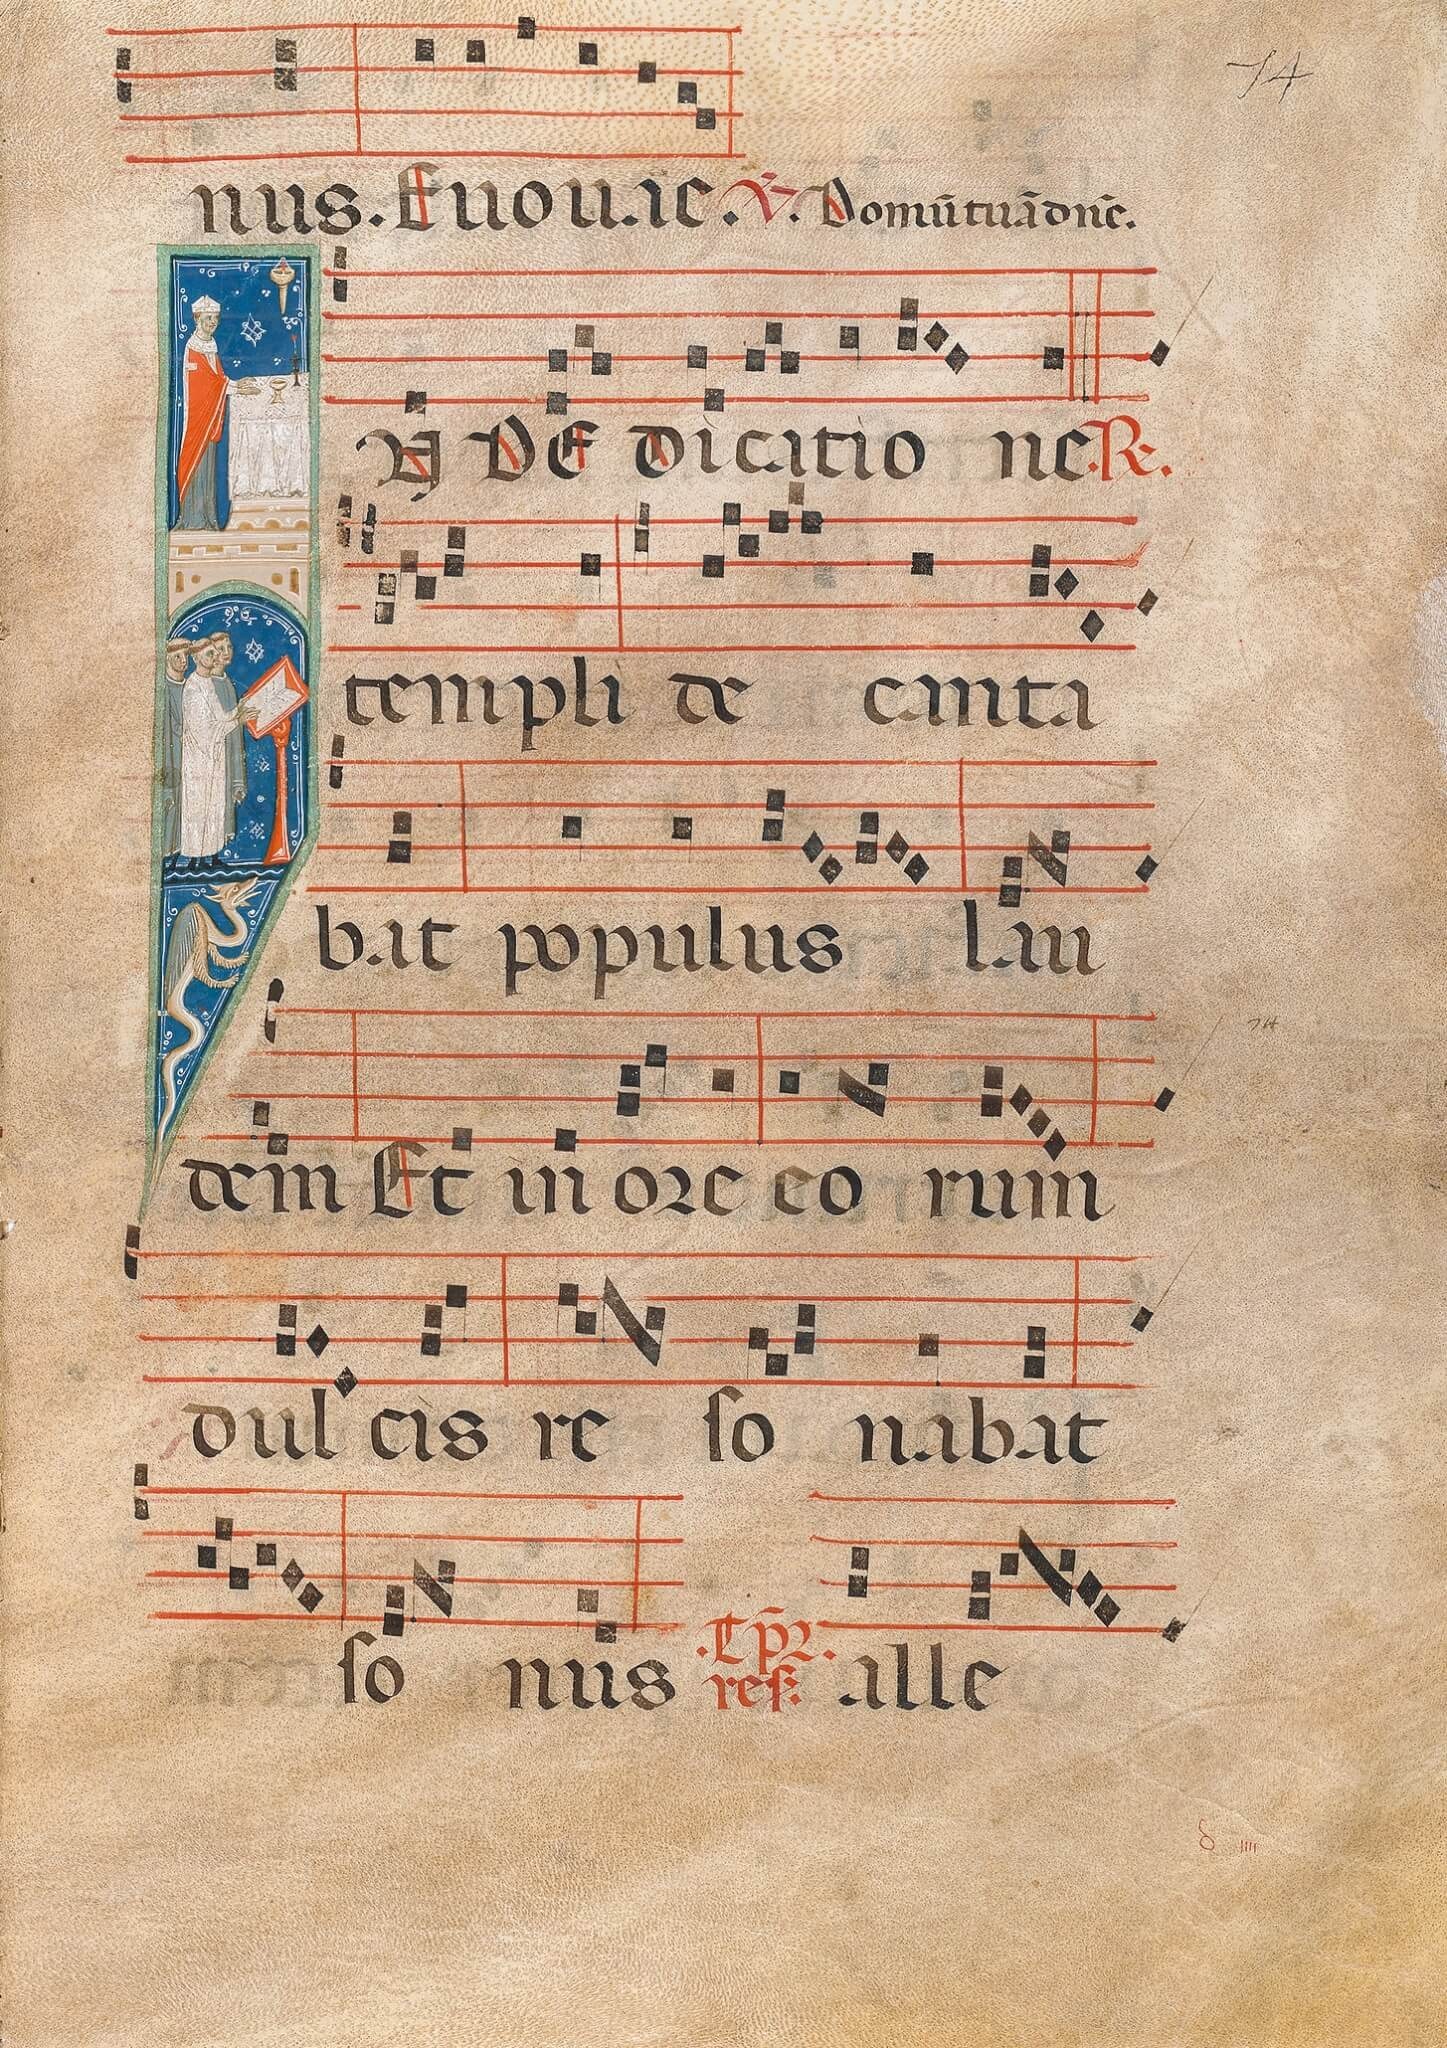 74
nus. Euouae. ℣. Domū tuā dn̄e.
IN DEdicatio ne ℟.
templi de canta
bat populus lau
74
dem Et in ore eo rum
dul cis re so nabat
so nus .T. pr̄. alle
res.
δ iiii